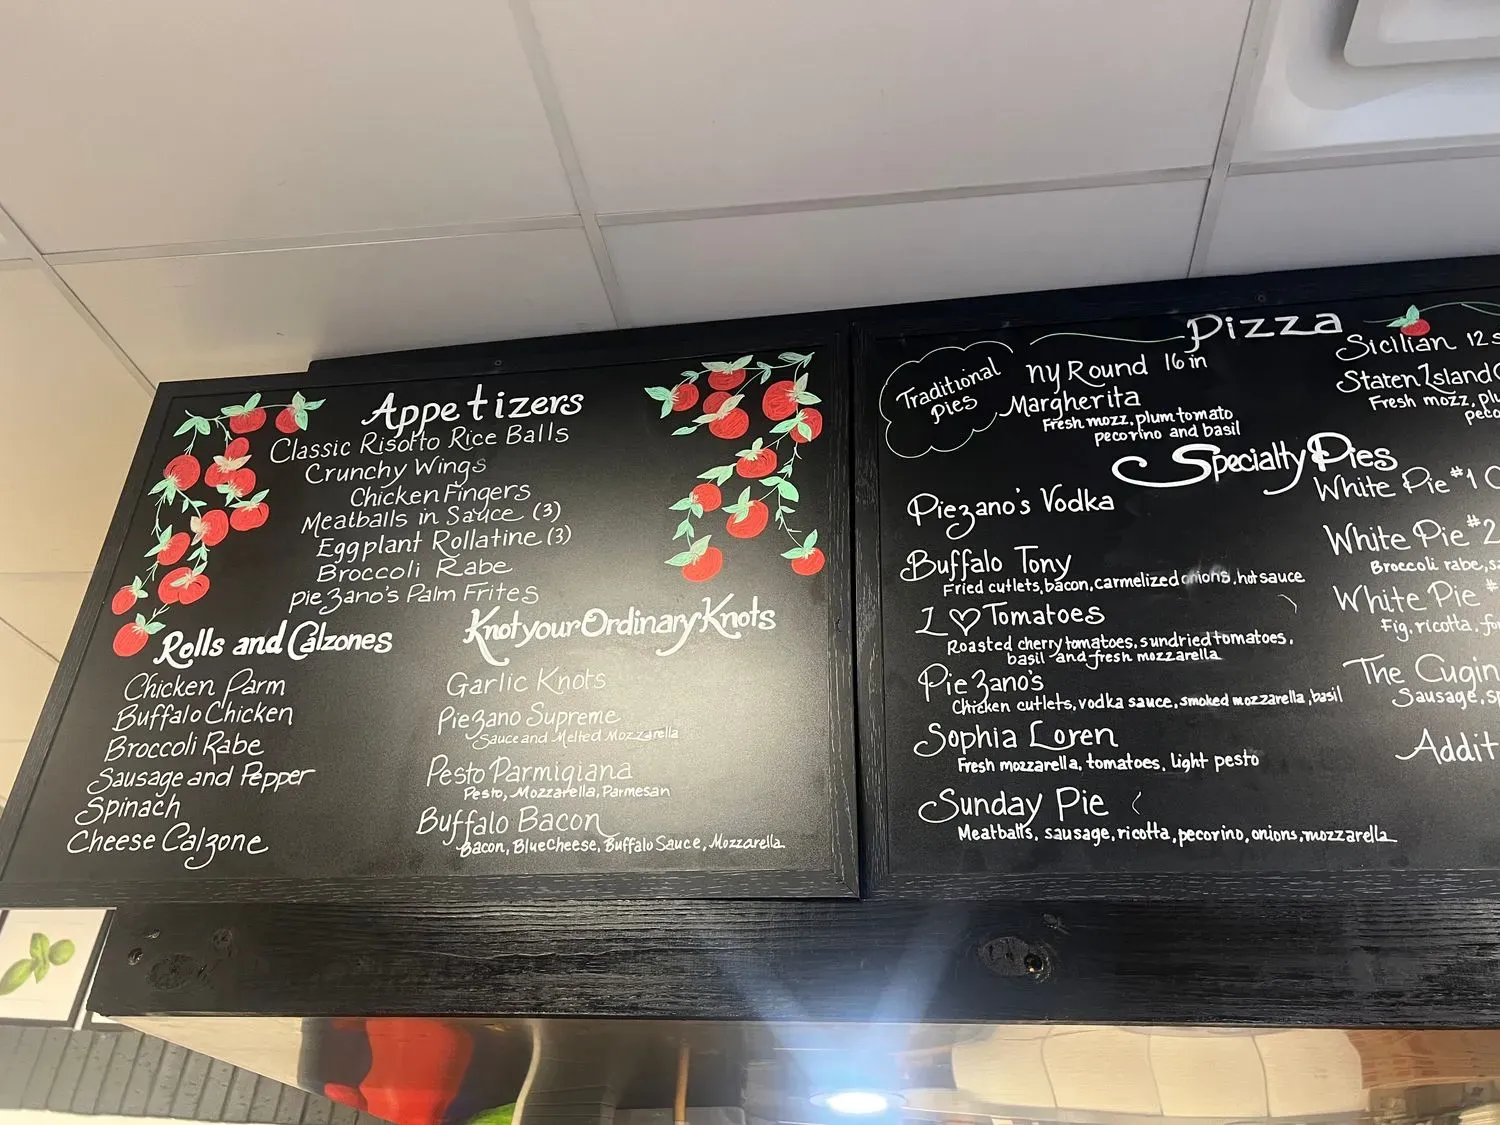 Appetizers
Classic Risotto Rice Balls
Crunchy Wings
Chicken Fingers
Meatballs in Sauce (3)
Eggplant Rollatine (3)
Broccoli Rabe
Piezano's Palm Frites
Rolls and Calzones
Chicken Parm
Buffalo Chicken
Broccoli Rabe
Sausage and Pepper
Spinach
Cheese Calzone
Knot your Ordinary Knots
Garlic Knots
Piezano Supreme
Sauce and Melted Mozzarella
Pesto Parmigiana
Pesto, Mozzarella, Parmesan
Buffalo Bacon
Bacon, Blue Cheese, Buffalo Sauce, Mozzarella
Pizza
Traditional
pies
ny Round 16 in
Margherita
Fresh mozz, plum tomato
pecorino and basil
Sicilian 12
Staten Island
Fresh mozz,
Specialty Pies
Piezano's Vodka
Buffalo Tony
Fried cutlets, bacon, carmelized onions, hot sauce
I ♡ Tomatoes
Roasted cherry tomatoes, sundried tomatoes,
basil and fresh mozzarella
Piezano's
Chicken cutlets, vodka sauce, smoked mozzarella, basil
Sophia Loren
Fresh mozzarella, tomatoes, light pesto
Sunday Pie
Meatballs, sausage, ricotta, pecorino, onions, mozzarella
White Pie #1
White Pie #2
Broccoli rabe,
White Pie #
Fig, ricotta,
The
Sausage,